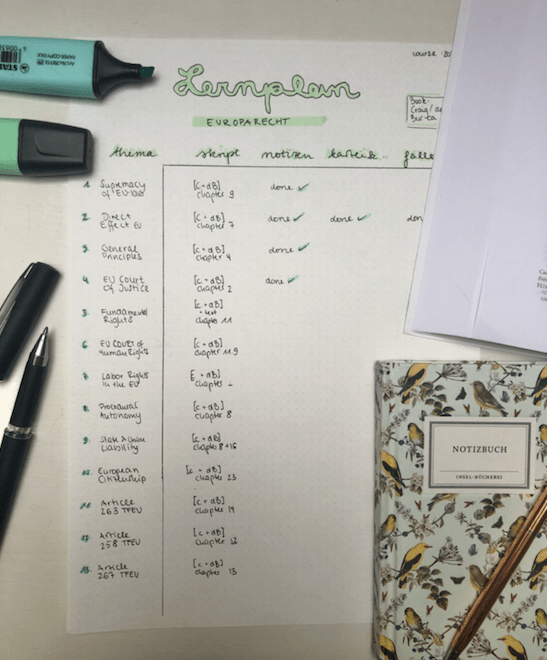 STAB
Lernplan
EUROPARECHT
course
Book:
Craig/de
Búrca
thema skript notizen karteik. fälle
1. Supremacy of EU law [C+dB] chapter 9 done ✓
2. Direct Effect EU [C+dB] chapter 7 done ✓ done ✓ don
3. General Principles [C+dB] chapter 4 done ✓
4. EU Court of Justice [C+dB] chapter 2 done ✓
5. Fundamental Rights [C+dB] chapter 11
6. EU Court of Human Rights [C+dB] chapter 11 9
7. Labor Rights in the EU [C+dB] chapter –
8. Procedural Autonomy [C+dB] chapter 8
9. State Action Liability [C+dB] chapter 8+16
10. European Citizenship [C+dB] chapter 23
11. Article 263 TFEU [C+dB] chapter 14
12. Article 258 TFEU [C+dB] chapter 12
13. Article 267 TFEU [C+dB] chapter 13
NOTIZBUCH
INSEL-BÜCHEREI